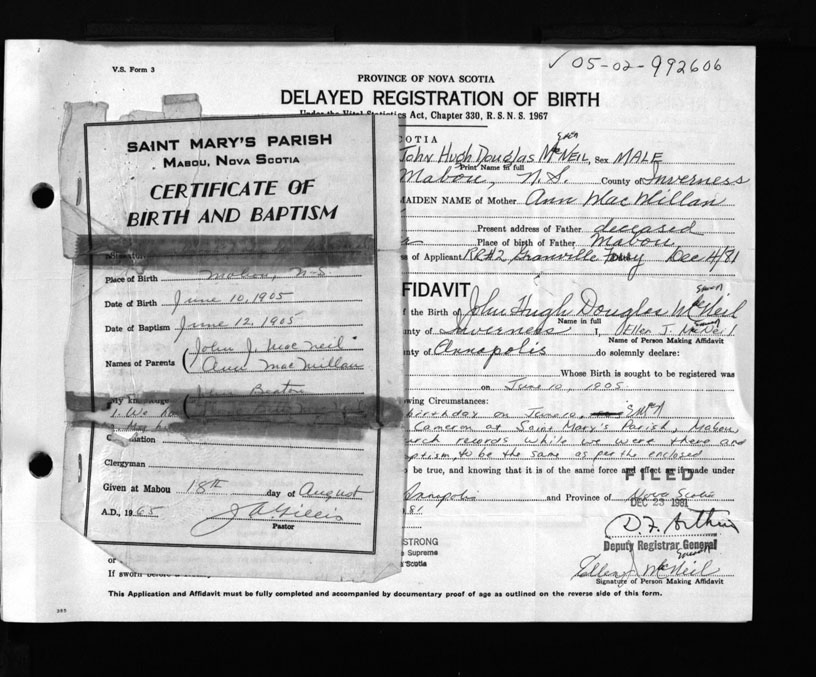 V.S. Form 3
✓ 05-02-992606
PROVINCE OF NOVA SCOTIA
DELAYED REGISTRATION OF BIRTH
Act, Chapter 330, R.S.N.S. 1967
SAINT MARY'S PARISH
MABOU, NOVA SCOTIA
CERTIFICATE OF
BIRTH AND BAPTISM
Place of Birth Mabou, N.S.
Date of Birth June 10, 1905
Date of Baptism June 12, 1905
Names of Parents ( John J. MacNeil
Ann MacMillan
Beaton
Clergyman
Given at Mabou 18th day of August
A.D., 1965 J A Gillis
Pastor
COTIA
John Hugh Douglas McNEIL Sex MALE
Print Name in full
Mabou, N.S. County of Inverness
MAIDEN NAME of Mother Ann MacMillan
Present address of Father deceased
Place of birth of Father Mabou,
of Applicant RR#2 Granville Ferry Dec 4/81
FFIDAVIT
of the Birth of John Hugh Douglas McNeil
Name in full
nty of Inverness I, Ellen J. McNeil
Name of Person Making Affidavit
nty of Annapolis do solemnly declare:
Whose Birth is sought to be registered was
on June 10, 1905
wing Circumstances:
birthday on June 10,
Cameron at Saint Mary's Parish, Mabou
rch records while we were there and
ptism, to be the same as per the enclosed
be true, and knowing that it is of the same force and effect as if made under
FILED
Annapolis and Province of Nova Scotia
81 DEC 23 1981
STRONG
e Supreme
Scotia
Deputy Registrar General
If sworn before a
Ellen J McNeil
Signature of Person Making Affidavit
This Application and Affidavit must be fully completed and accompanied by documentary proof of age as outlined on the reverse side of this form.